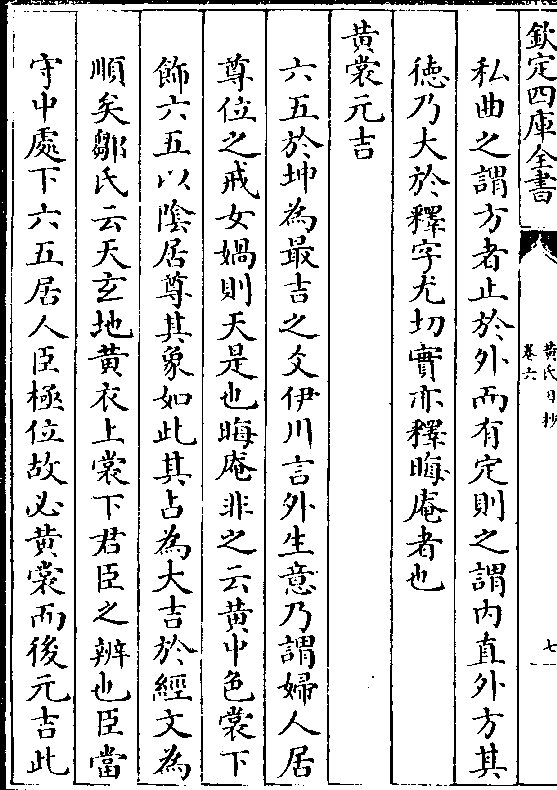 欽定四庫全書
黃氏日抄
卷六
七
私曲之謂方者止於外而有定則之謂内直外方其
徳乃大於釋字尤切實亦釋晦庵者也
黃裳元吉
六五於坤為最吉之爻伊川言外生意乃謂婦人居
尊位之戒女媧則天是也晦庵非之云黃中色裳下
飾六五以陰居尊其象如此其占為大吉於經文為
順矣鄒氏云天玄地黃衣上裳下君臣之辨也臣當
守中處下六五居人臣極位故必黃裳而後元吉此